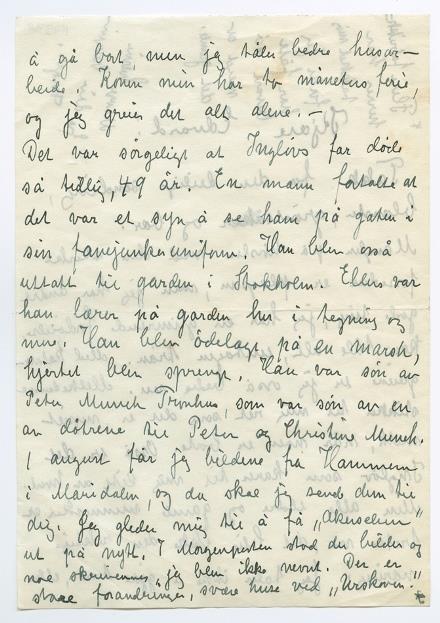 å gå bort, men jeg tåler bedre husar-
beide. Konen min har to måneters ferie,
og jeg greier det alt alene. –
Det var sørgeligt at Ingløvs far døde
så tidlig, 49 år. En mann fortalte at
det var et syn å se ham på gaten i
sin fanejunkeruniform. Han blev også
uttatt til garden i Stokholm. Ellers var
han lærer på garden her i tegning og
mere. Han blev ødelagt på en marsh,
hjertet blev sprengt. Han var søn av
Peter Munch Tronhus, som var søn av en
av døtrene til Peter og Christine Munch.
I august får jeg bildene fra Hammeren
i Maridalen, og da skal jeg send dem til
dig. Jeg gleder mig til å få „Akerselven"
ut på nytt. I Morgenposten stod der bilder og
noe skrivennes, jeg blev ikke nevnt. Der er
store forandringer, svære huse ved „Urskoven."